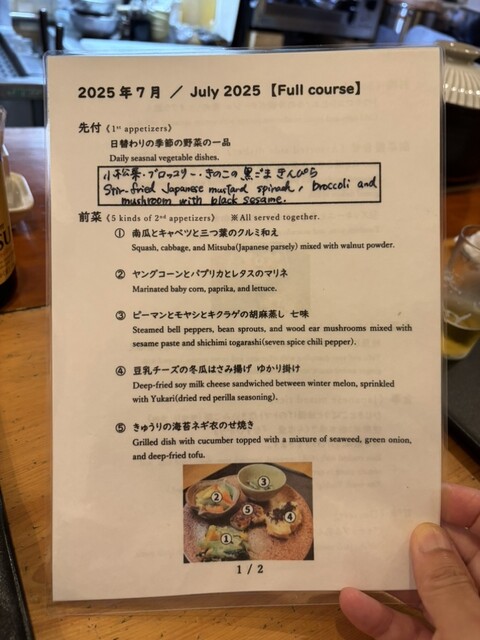 2025年7月 ／ July 2025【Full course】
先付《1st appetizers》
日替わりの季節の野菜の一品
Daily seasnal vegetable dishes.
小松菜・ブロッコリー・きのこの黒ごまきんぴら
Stir-fried Japanese mustard spinash, broccoli and
mushroom with black sesame.
前菜《5 kinds of 2nd appetizers》 ※All served together.
① 南瓜とキャベツと三つ葉のクルミ和え
Squash, cabbage, and Mitsuba(Japanese parsely) mixed with walnut powder.
② ヤングコーンとパプリカとレタスのマリネ
Marinated baby corn, paprika, and lettuce.
③ ピーマンとモヤシとキクラゲの胡麻蒸し 七味
Steamed bell peppers, bean sprouts, and wood ear mushrooms mixed with
sesame paste and shichimi togarashi(seven spice chili pepper).
④ 豆乳チーズの冬瓜はさみ揚げ ゆかり掛け
Deep-fried soy milk cheese sandwiched between winter melon, sprinkled
with Yukari(dried red perilla seasoning).
⑤ きゅうりの海苔ネギ衣のせ焼き
Grilled dish with cucumber topped with a mixture of seaweed, green onion,
and deep-fried tofu.
③
②
⑤
④
①
1 / 2